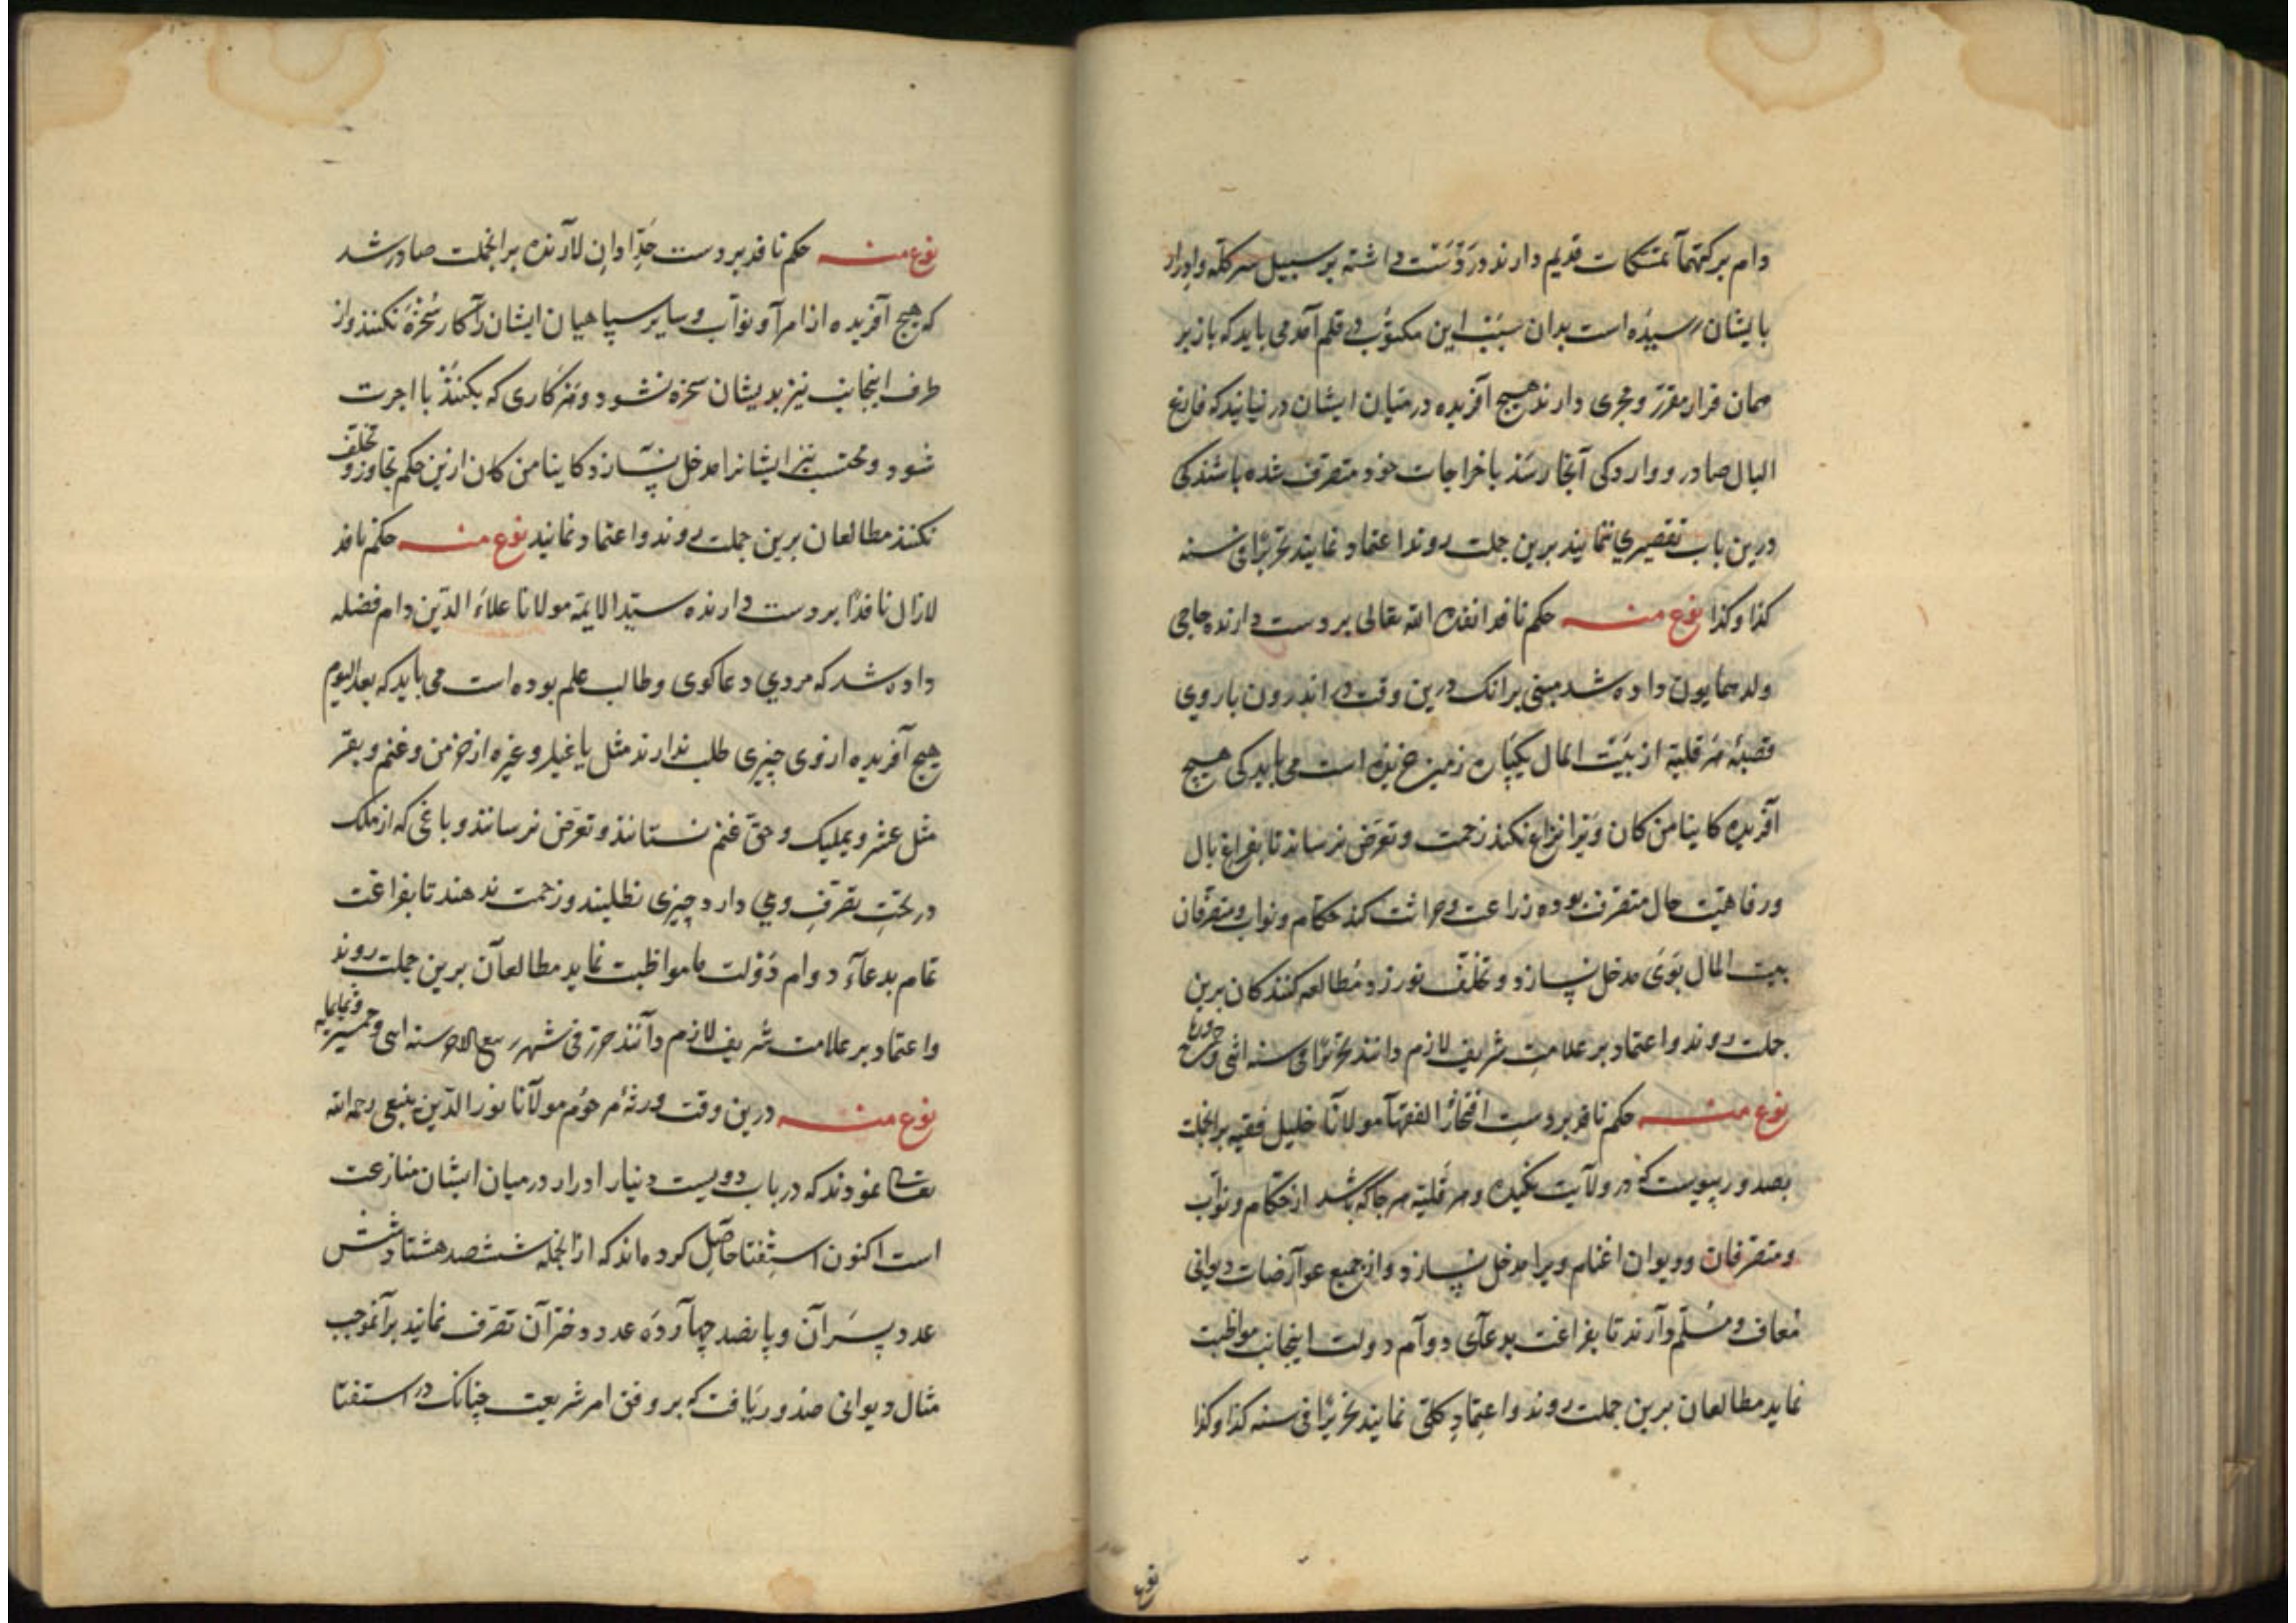 دام برکتهما تمتکات قدیم دارند در دست داشته بر سبیل سرکله و ادرار
بایشان رسیده است بدان سبب این مکتوب در قلم آمد می باید که باز بر
همان قرار مقرر و مجری دارند هیچ آفریده در میان ایشان در نیایند که فارغ
البال صادر و وارد کی آنجا رسند با خراجات خود متصرف شده باشند کی
درین باب تقصیری ننمایند برین جملت روند اعتماد نمایند تحریرا فی سنه
کذا و کذا نوع منه حکم نافد انفذه الله تعالی بر دست دارنده حاجی
ولد همایون داده شد مبنی برانک درین وقت در اندرون باروی
قصبهٔ از بیت المال یکپاره زمین خریده است می باید کی هیچ
آفریده کاینا من کان ویرا نزاع نکند زحمت و تعرض نرساند تا بفراغ بال
و رفاهیت حال متصرف بوده زراعت و حراثت کند حکام و نواب و متصرفان
بیت المال بوی مدخل نسازد و تخلف نورزد و مطالعه کنندکان برین
جملت روند و اعتماد بر علامت شریف لازم دانند تحریرا فی سنه اثنی و
نوع منه حکم نافد بر دست افتخار الفقها مولانا خلیل فقیه برانجملت
بصدور پیوست که در ولایت و هر جا که باشد از حکام و نواب
و متصرفان و دیوان اغنام ویرا مدخل نسازد و از جمیع عوارضات دیوانی
معاف و مسلم دارند تا بفراغت بدعای دوام دولت اینجانب مواظبت
نماید مطالعان برین جملت روند و اعتماد کلی نمایند تحریرا فی سنه کذا و کذا
نوع
نوع منه حکم نافد بر دست برانجملت صادر شد
که هیچ آفریده از امرا و نواب و سایر سپاهیان ایشان را کار سخره نکنند و از
طرف اینجانب نیز بدیشان سخره نشود و هر کاری که بکنند با اجرت
شود و محتسب نیز ایشانرا مدخل نسازد کاینا من کان ازین حکم تجاوز و تخلف
نکنند مطالعان برین جملت روند و اعتماد نمایند نوع منه حکم نافد
لازال نافدا بر دست دارنده سید الایمة مولانا علاء الدین دام فضله
داده شد که مردی دعاکوی و طالب علم بوده است می باید که بعد الیوم
هیچ آفریده از وی چیزی طلب ندارند مثل و غیره از خرمن و غنم و بقر
مثل عشر و و حق غنم نستانند و تعرض نرسانند و باغی که از ملک
در تحت تصرف وی دارد چیزی نطلبند و زحمت ندهند تا بفراغت
تمام بدعاء دوام دولت ما مواظبت نماید مطالعان برین جملت روند
و اعتماد بر علامت شریف لازم دانند حرر فی شهر ربیع الاخر سنه اثنی و خمسین و ثمانمایه
نوع منه درین وقت ورثهٔ مرحوم مولانا نور الدین رحمه الله
تعالی نمودند که در باب دویست دینار ادرار در میان ایشان منازعت
است اکنون استفتا حاصل کرده اند که از انجمله ششصد هشتاد شش
عدد پسران و پانصد چهارده عدد دختران تصرف نمایند برآنموجب
مثال دیوانی صدور یافت که بر وفق امر شریعت چنانک در استفتا